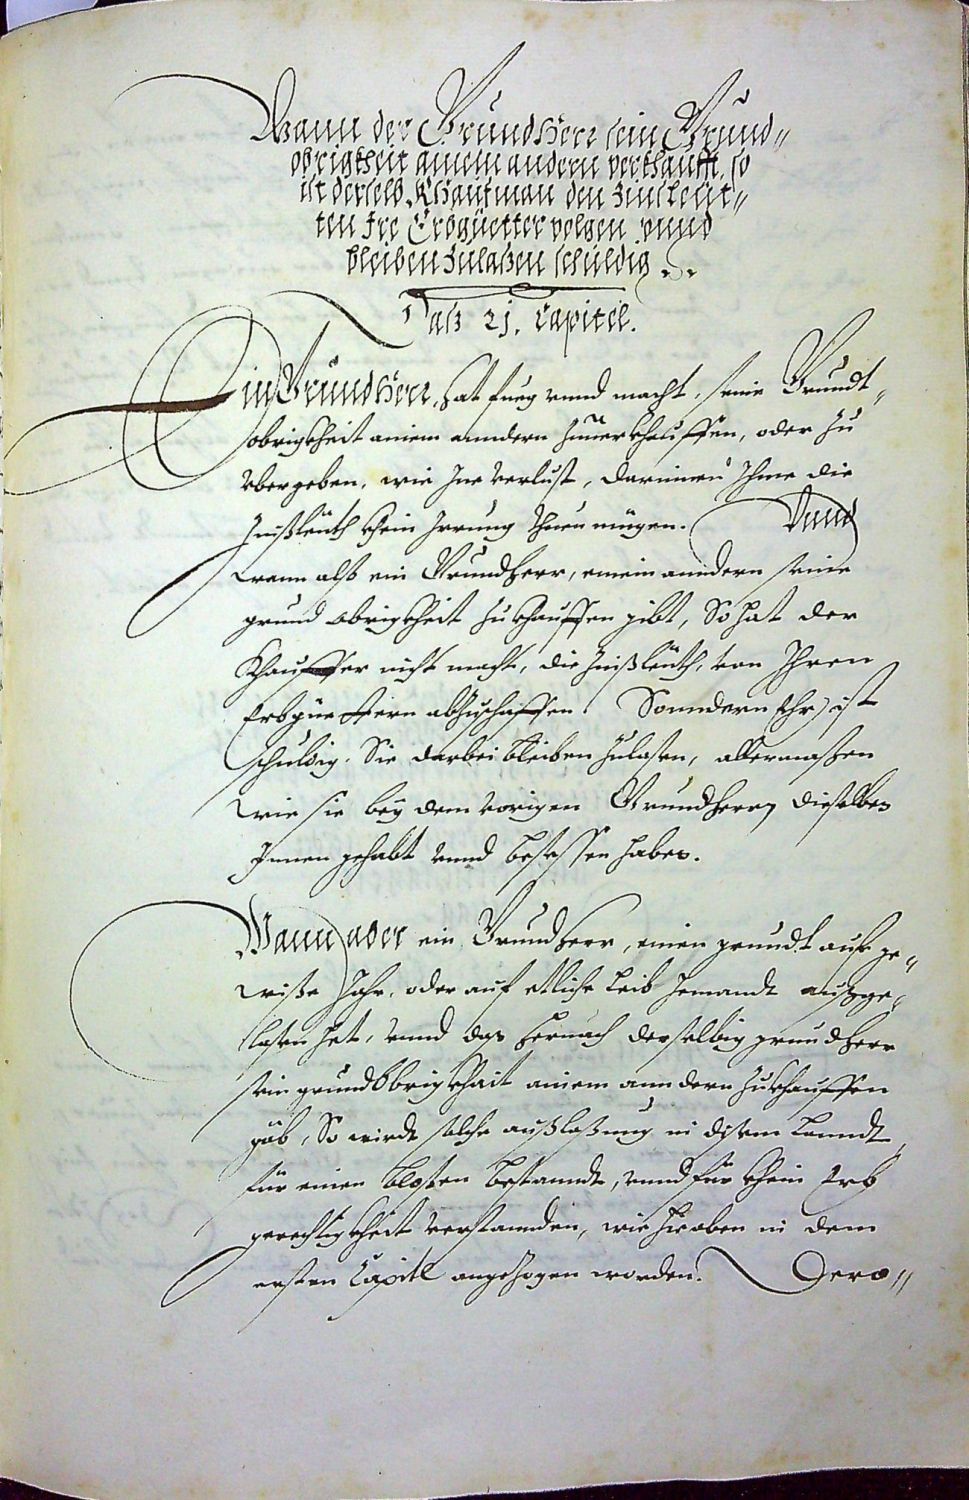 Wann der Grundtherr sein Grund„
obrigkheit ainem andern verkhaufft, so
ist derselb Khaufman den Zinsleut„
ten Ire Erbgüetter volgen vnnd
bleiben Zulaßen schuldig.
Daß 21. Capitel.
Ein Grundtherr, hat fueg vnnd macht, seine Grundt„
obrigkheit ainem anndern Zuuerkhauffen, oder Zu
vbergeben, wie Ine verlust, darinnen Ihme die
Zinßleüth khein Irrung thuen mügen. Vnnd
wann alß ein Grundherr, einem anndern seine
grund obrigkheit Zukhauffen gibt, So hat der
Khauffer nicht macht, die Zinßleüth, von Ihren
Erbgüettern abZuschaffen. Sonndern Ehr ist
schuldig, Sie darbei bleiben Zulasen, allermaßen
wie sie beÿ dem vorigen Grundherrn dieselben
Innen gehabt vnnd besessen haben.
Wann aber ein Grundherr, einen grundt auf ge„
wiße Jahr, oder auf etliche leib Jemandt außge„
laßen het, vnnd das hernach derselbig grundherr
sein grundobrigkhait ainem anndern Zukhauffen
gäb, So wirdt solche außlaßung in disem Lanndt
für einen bloßen bestanndt, vnnd für khein Erb
gerechtigkheit verstannden, wie hieoben in dem
ersten Capitl angeZogen worden. Dero„